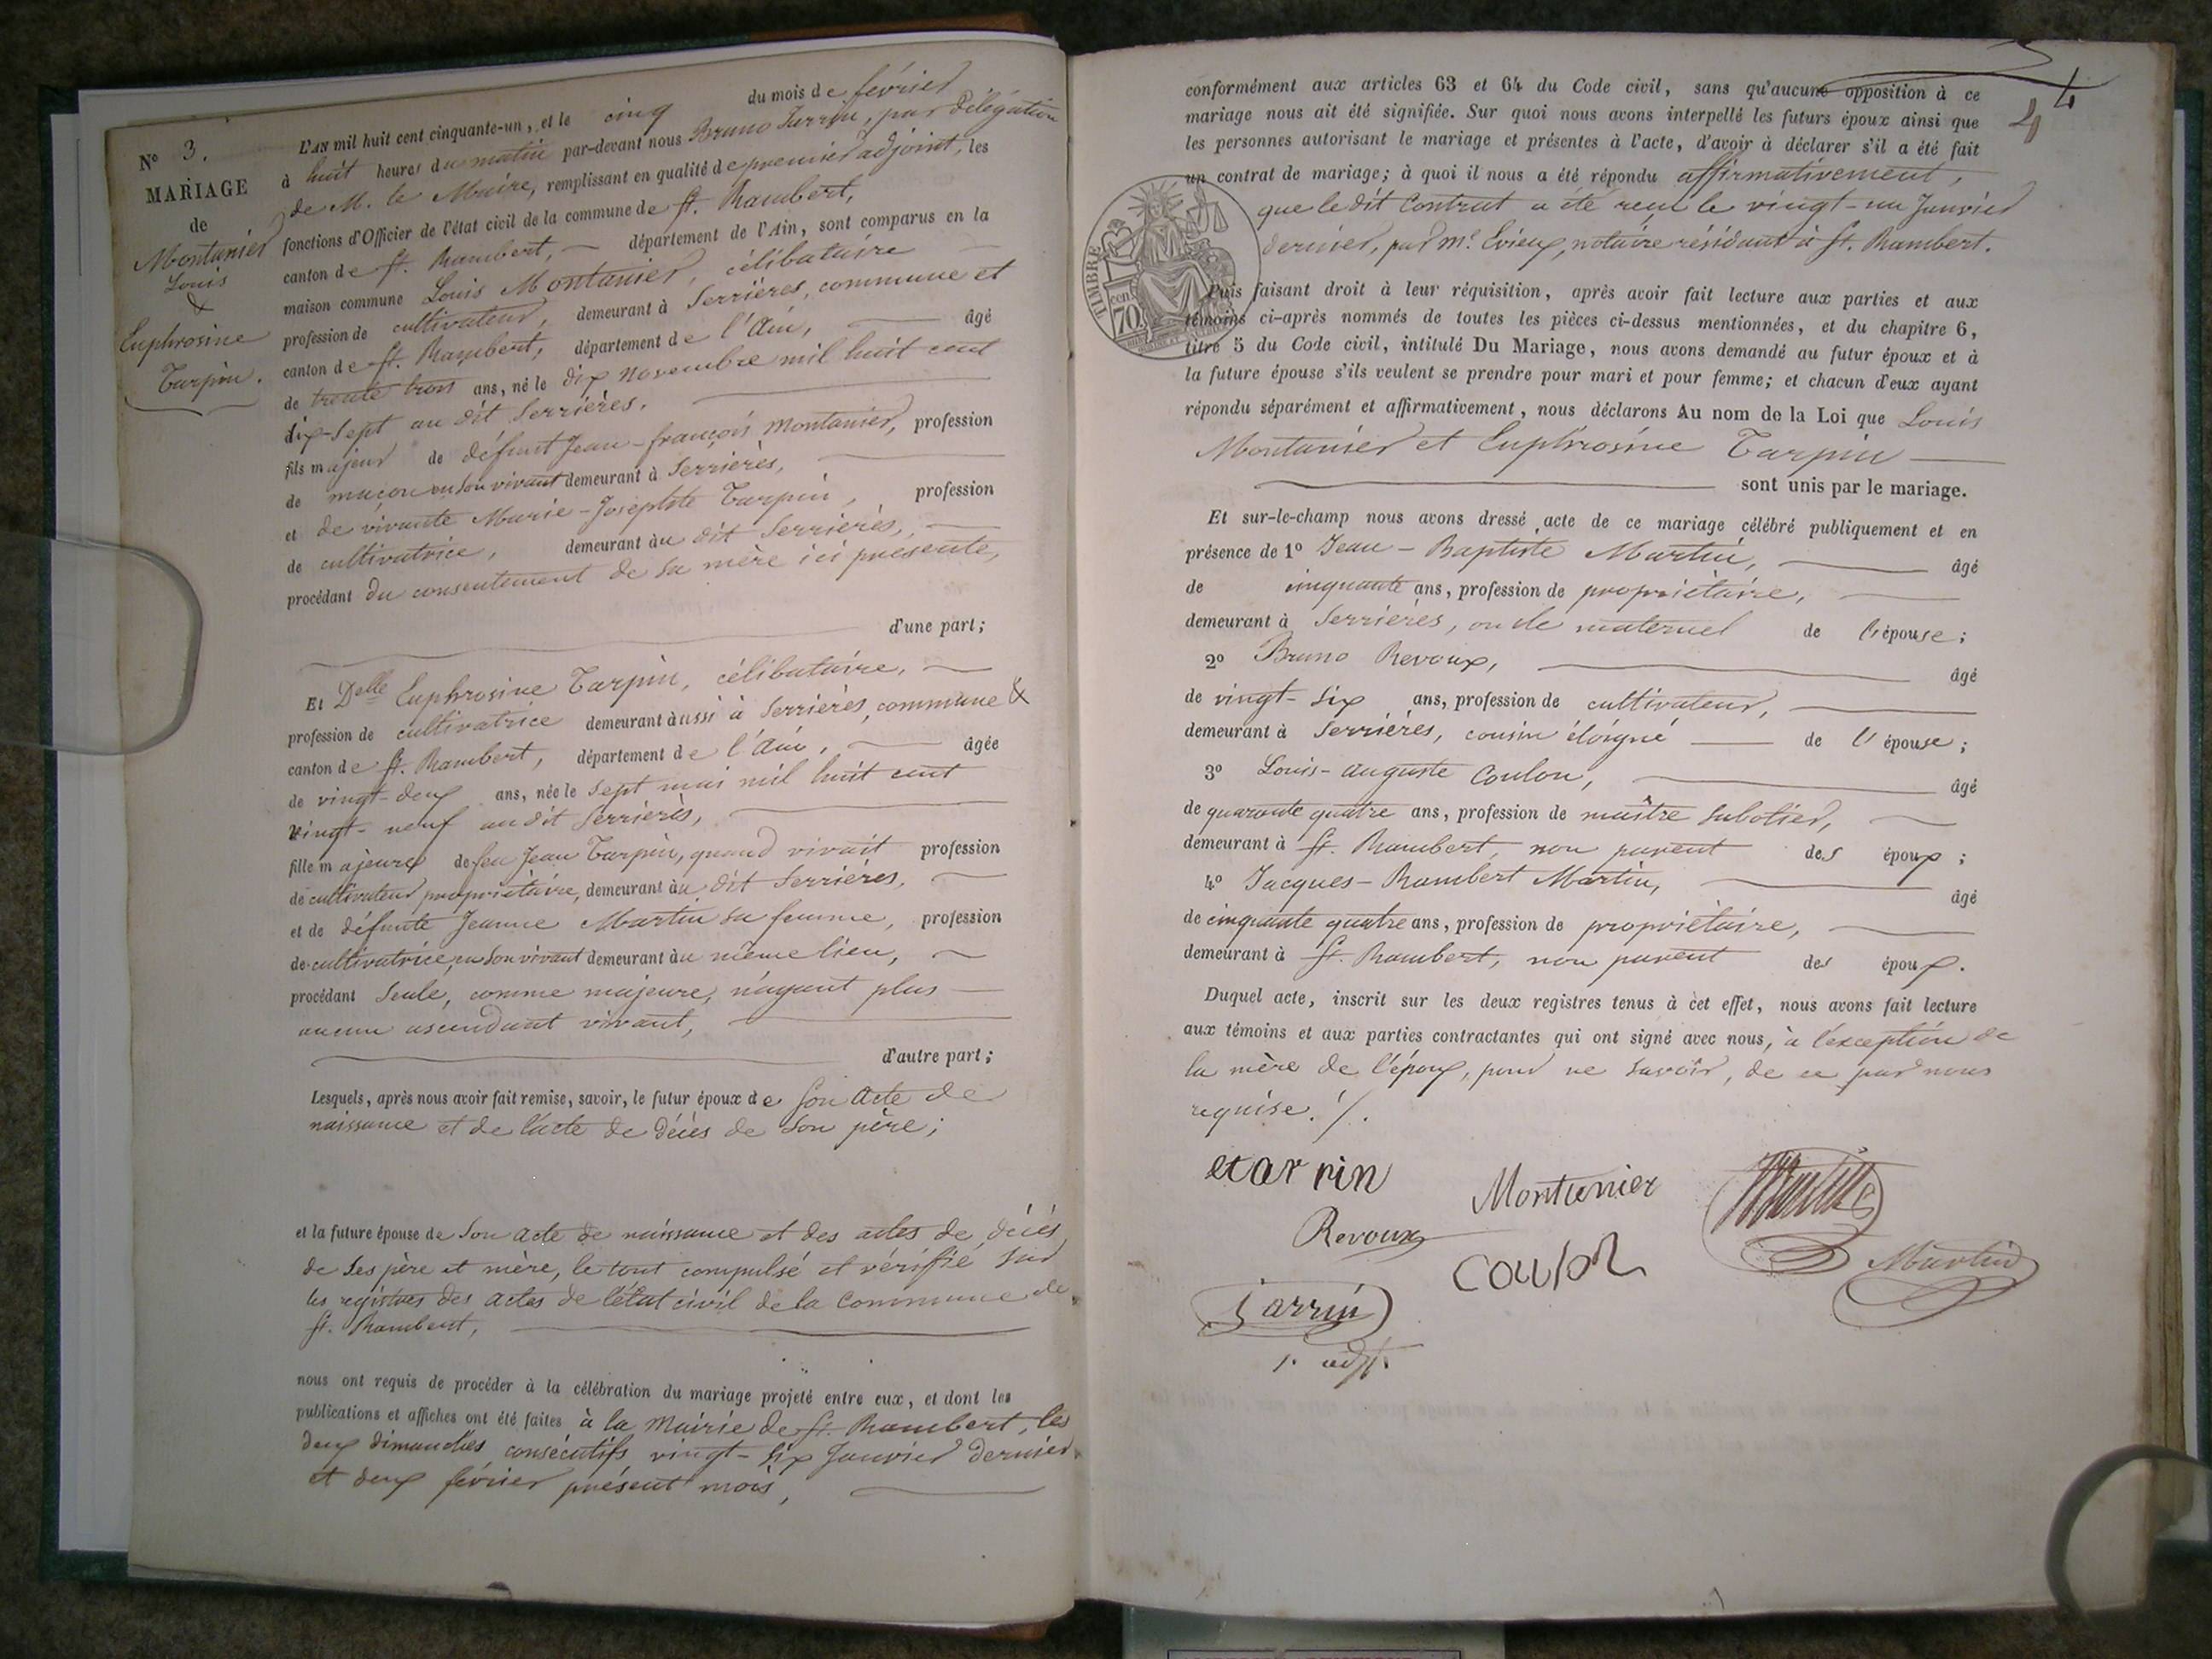 N° 3.
MARIAGE
de
Montanier
Louis
&
Euphrosine
Tarpin.
L'AN mil huit cent cinquante-un, et le cinq du mois de février
à huit heures du matin par-devant nous Bruno Jarrin, par délégation
de M. le Maire, remplissant en qualité de premier adjoint, les
fonctions d'Officier de l'état civil de la commune de St. Rambert,
canton de St. Rambert, département de l'Ain, sont comparus en la
maison commune Louis Montanier, célibataire
profession de cultivateur, demeurant à Serrières, commune et
canton de St. Rambert, département de l'Ain, âgé
de trente trois ans, né le dix novembre mil huit cent
dix-sept au dit Serrières.
fils majeur de défunt Jean-françois Montanier, profession
de maçon en son vivant demeurant à Serrières,
et de vivante Marie-Josephte Tarpin, profession
de cultivatrice, demeurant au dit Serrières,
procédant du consentement de sa mère ici présente,
d'une part;
Et Delle Euphrosine Tarpin, célibataire,
profession de cultivatrice demeurant aussi à Serrières, commune &
canton de St. Rambert, département de l'Ain, âgée
de vingt-deux ans, née le sept mai mil huit cent
vingt-neuf au dit Serrières,
fille majeure de feu Jean Tarpin, quand vivait profession
de cultivateur propriétaire, demeurant au dit Serrières,
et de défunte Jeanne Martin sa femme, profession
de cultivatrice, en son vivant demeurant au même lieu,
procédant seule, comme majeure, n'ayant plus
aucun ascendant vivant,
d'autre part;
Lesquels, après nous avoir fait remise, savoir, le futur époux de son acte de
naissance et de l'acte de décès de son père;
et la future épouse de son acte de naissance et des actes de décès
de ses père et mère, le tout compulsé et vérifié sur
les registres des actes de l'état civil de la Commune de
St. Rambert,
nous ont requis de procéder à la célébration du mariage projeté entre eux, et dont les
publications et affiches ont été faites à la Mairie de St. Rambert, les
deux dimanches consécutifs vingt-six Janvier dernier
et deux février présent mois,
4
conformément aux articles 63 et 64 du Code civil, sans qu'aucune opposition à ce
mariage nous ait été signifiée. Sur quoi nous avons interpellé les futurs époux ainsi que
les personnes autorisant le mariage et présentes à l'acte, d'avoir à déclarer s'il a été fait
un contrat de mariage; à quoi il nous a été répondu affirmativement,
que le dit Contrat a été reçu le vingt-un Janvier
dernier, par Me. Evieux, notaire résidant à St. Rambert.
TIMBRE
cen
70
Puis faisant droit à leur réquisition, après avoir fait lecture aux parties et aux
témoins ci-après nommés de toutes les pièces ci-dessus mentionnées, et du chapitre 6,
titre 5 du Code civil, intitulé Du Mariage, nous avons demandé au futur époux et à
la future épouse s'ils veulent se prendre pour mari et pour femme; et chacun d'eux ayant
répondu séparément et affirmativement, nous déclarons Au nom de la Loi que Louis
Montanier et Euphrosine Tarpin
sont unis par le mariage.
Et sur-le-champ nous avons dressé acte de ce mariage célébré publiquement et en
présence de 1° Jean-Baptiste Martin, âgé
de cinquante ans, profession de propriétaire,
demeurant à Serrières, oncle maternel de l'épouse;
2° Bruno Revoux, âgé
de vingt-six ans, profession de cultivateur,
demeurant à Serrières, cousin éloigné de l'épouse;
3° Louis-auguste Coulon, âgé
de quarante quatre ans, profession de maître sabotier,
demeurant à St. Rambert, non parent des époux;
4° Jacques-Rambert Martin, âgé
de cinquante quatre ans, profession de propriétaire,
demeurant à St. Rambert, non parent des époux.
Duquel acte, inscrit sur les deux registres tenus à cet effet, nous avons fait lecture
aux témoins et aux parties contractantes qui ont signé avec nous, à l'exception de
la mère de l'époux, pour ne savoir, de ce par nous
requise./.
etarrin Montanier
Revoux
Coulon Martin
Jarrin
1. adjt.